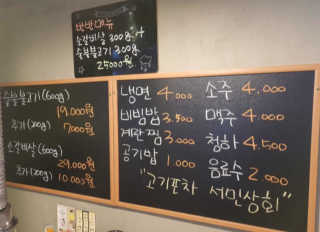 반반메뉴
소갈비살 300g +
숯불불고기 300g
25000원
숯불불고기(600g)
19.000원
추가(200g)
7000원
소갈비살(600g)
29.000원
추가(200g)
10.000원
냉면 4.000
비빔밥 3.500
계란찜 3.000
공기밥 1.000
소주 4.000
맥주 4.000
청하 4.500
음료수 2.000
"고기포차 서민상회"